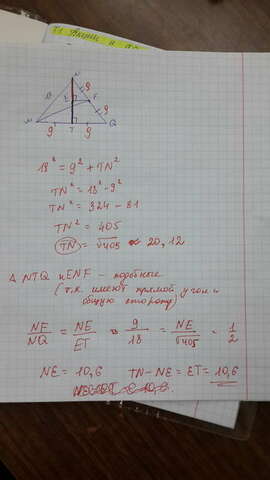 N
9
E F
9
M 9 T 9 Q
18² = 9² + TN²
TN² = 18² - 9²
TN² = 324 - 81
TN² = 405
TN = √405 ≈ 20,12
Δ NTQ и ENF - подобные
(т.к. имеют прямой угол и
общую сторону)
NF/NQ = NE/ET = 9/18 = NE/√405 = 1/2
NE = 10,6 TN - NE = ET = 10,6